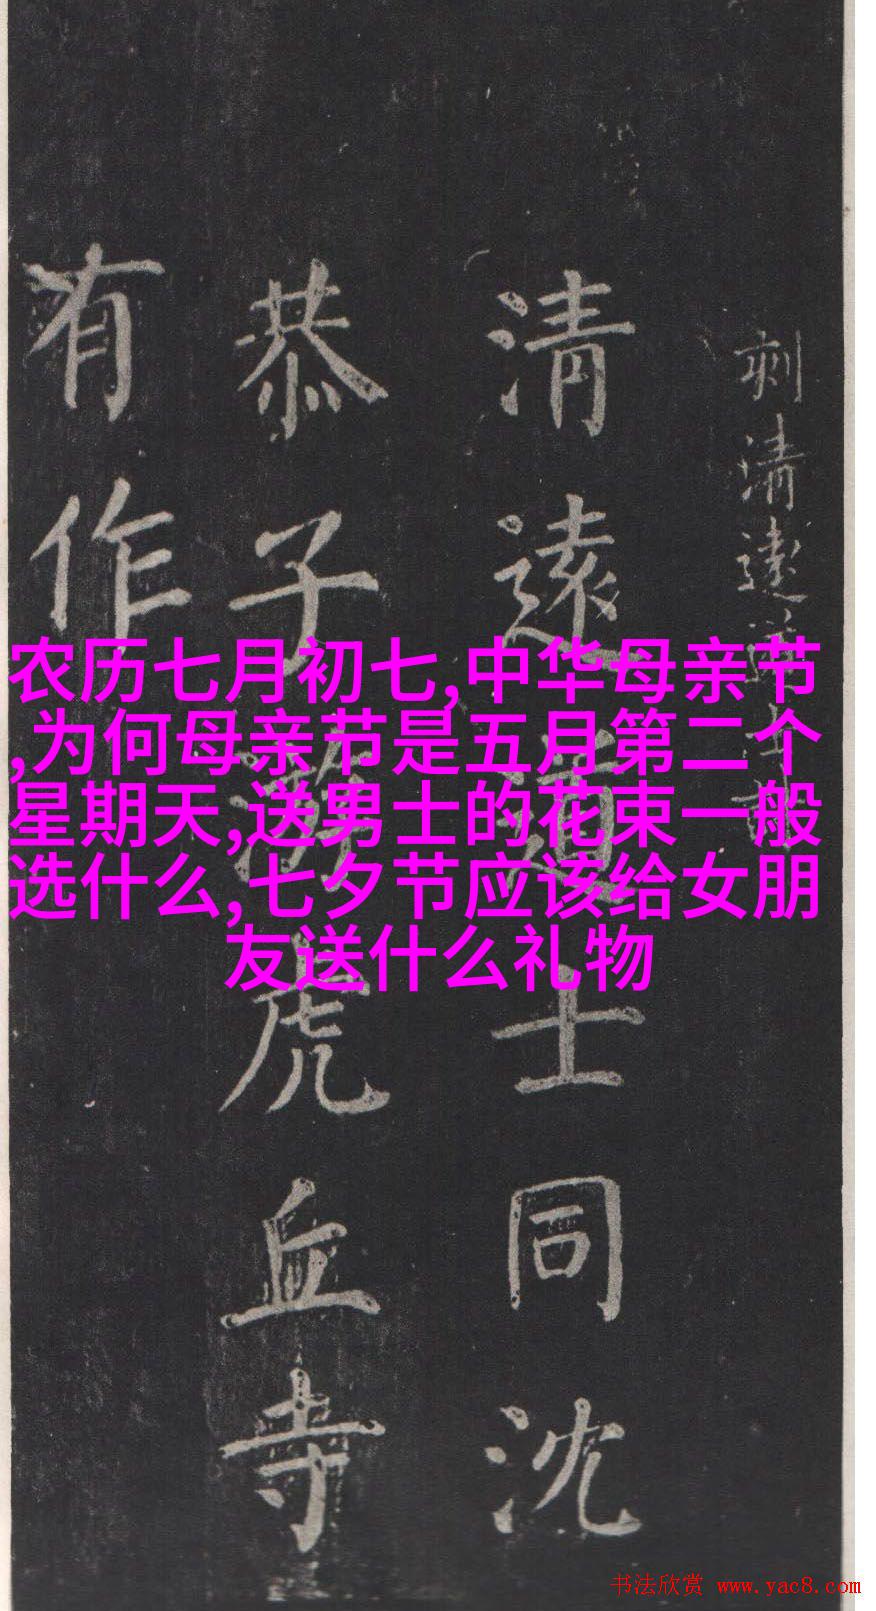 刻清遠道士詩
清遠道士同沈
恭子游虎丘寺
有作
农历七月初七,中华母亲节
,为何母亲节是五月第二个
星期天,送男士的花束一般
选什么,七夕节应该给女朋
友送什么礼物
书法欣赏 www.yac8.com